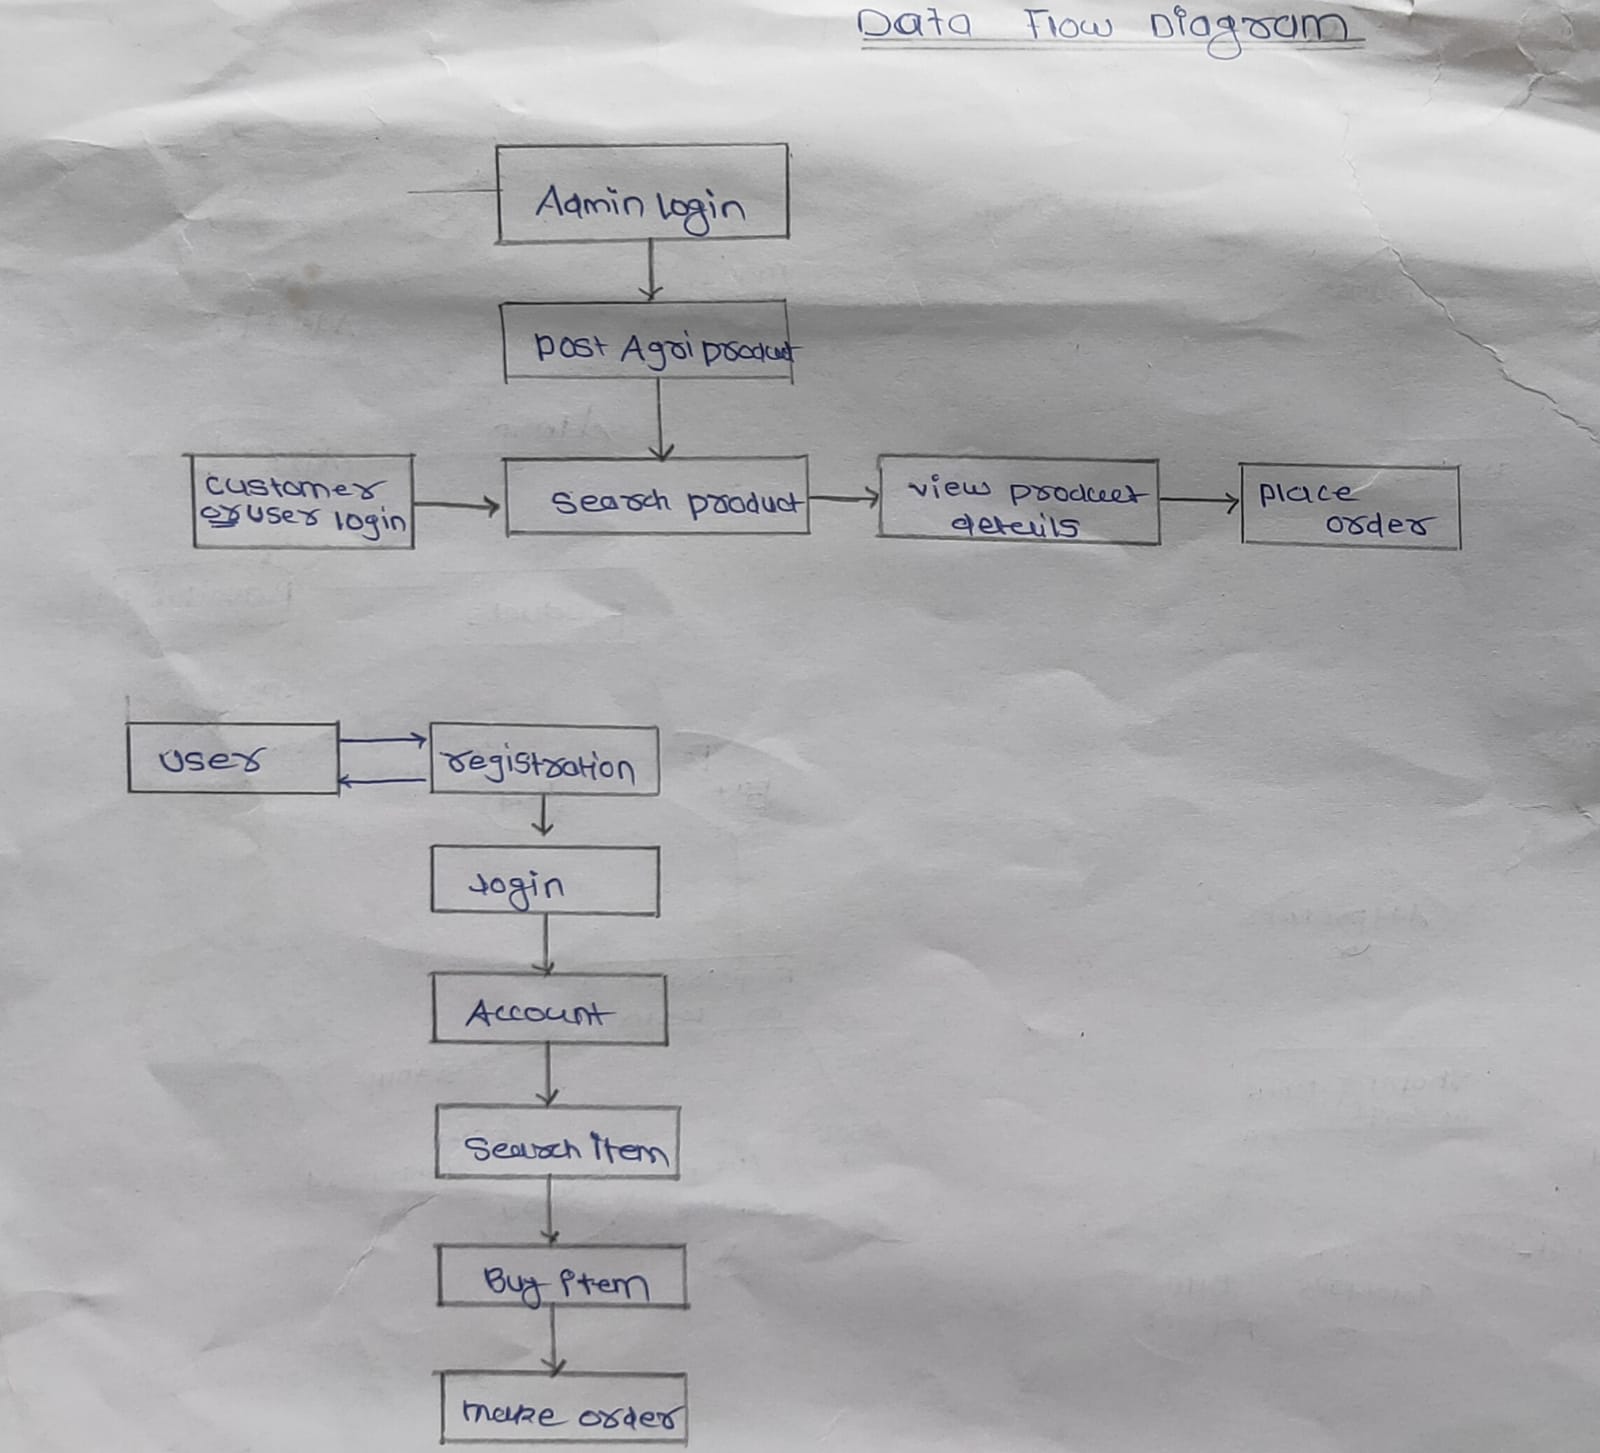 Data Flow Diagram
Admin login
post Agri product
customer
or user login
Search product
view product
details
place
order
user
registration
login
Account
Search item
Buy item
make order